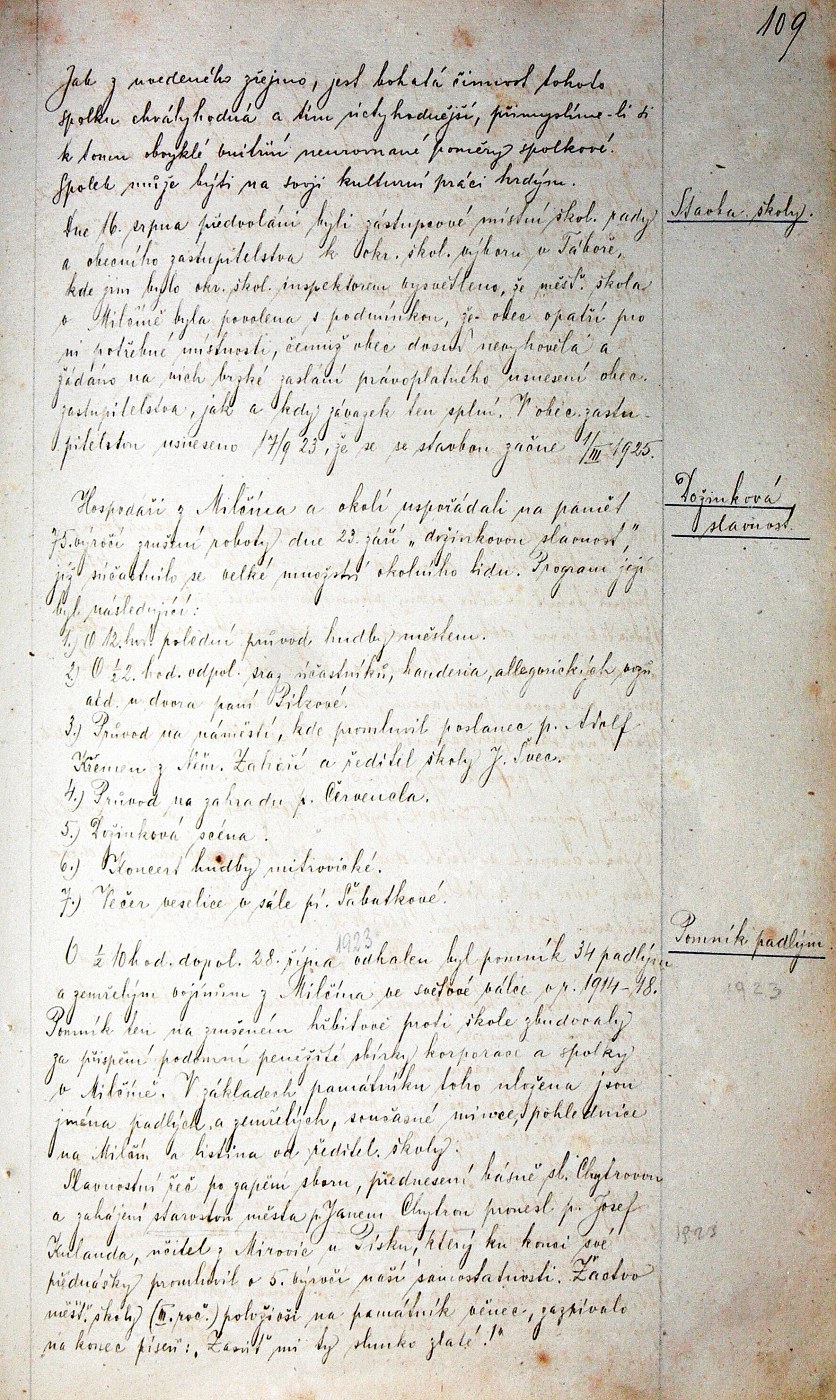 109
Jak z uvedeného zřejmo, jest bohatá činnost tohoto
spolku chvályhodná a tím úctyhodnější, přimyslíme-li si
k tomu obvyklé vnitřní neurovnané poměry spolkové.
Spolek může býti na svoji kulturní práci hrdým.
Stavba školy.
Dne 16. srpna předvoláni byli zástupcové místní škol. rady
a obecního zastupitelstva k okr. škol. výboru v Táboře,
kde jim bylo okr. škol. inspektorem vysvětleno, že měšť. škola
v Milčíně byla povolena s podmínkou, že obec opatří pro
ni potřebné místnosti, čemuž obec dosud nevyhověla a
žádáno na nich brzké zaslání právoplatného usnesení obec.
zastupitelstva, jak a kdy závazek ten splní. V obec. zastu-
pitelstvu usneseno 17/9 23, že se se stavbou začne 1/III 1925.
Dožinková
slavnost.
Hospodáři z Milčína a okolí uspořádali na paměť
75. výročí zrušení roboty dne 23. září „dožinkovou slavnost,"
jíž súčastnilo se velké množství okolního lidu. Program její
byl následující:
1.) O 12. hod. polední průvod hudby městem.
2.) O ½ 2. hod. odpol. sraz účastníků, banderia, allegorických vozů
atd. u dvora paní Pilzové.
3.) Průvod na náměstí, kde promluvil poslanec p. Adolf
Křemen z Něm. Záhoří a ředitel školy J. Švec.
4.) Průvod na zahradu p. Červenela.
5.) Dožinková scéna.
6.) Koncert hudby mitrovické.
7.) Večer veselice v sále pí. Šabatkové.
Pomník padlým.
1923
1923
O ½ 10 hod. dopol. 28. října odhalen byl pomník 34 padlým
a zemřelým vojínům z Milčína ve světové válce v r. 1914-18.
Pomník ten na zrušeném hřbitově proti škole zbudovaly
za přispění podomní peněžité sbírky korporace a spolky
v Milčíně. V základech památníku toho uložena jsou
jména padlých a zemřelých, současné mince, pohlednice
na Milčín a listina od ředitel. školy.
Slavnostní řeč po zapěm sboru, přednesení básně sl. Chytrovou
a zahájení starostou města p. Janem Chytrou pronesl p. Josef
1923
Kulanda, učitel z Mirovic u Písku, který ku konci své
přednášky promluvil o 5. výročí naší samostatnosti. Žactvo
měšť. školy (III. roč.) položivši na památník věnec, zazpívalo
na konec píseň: „Zasviť mi ty slunko zlaté!"